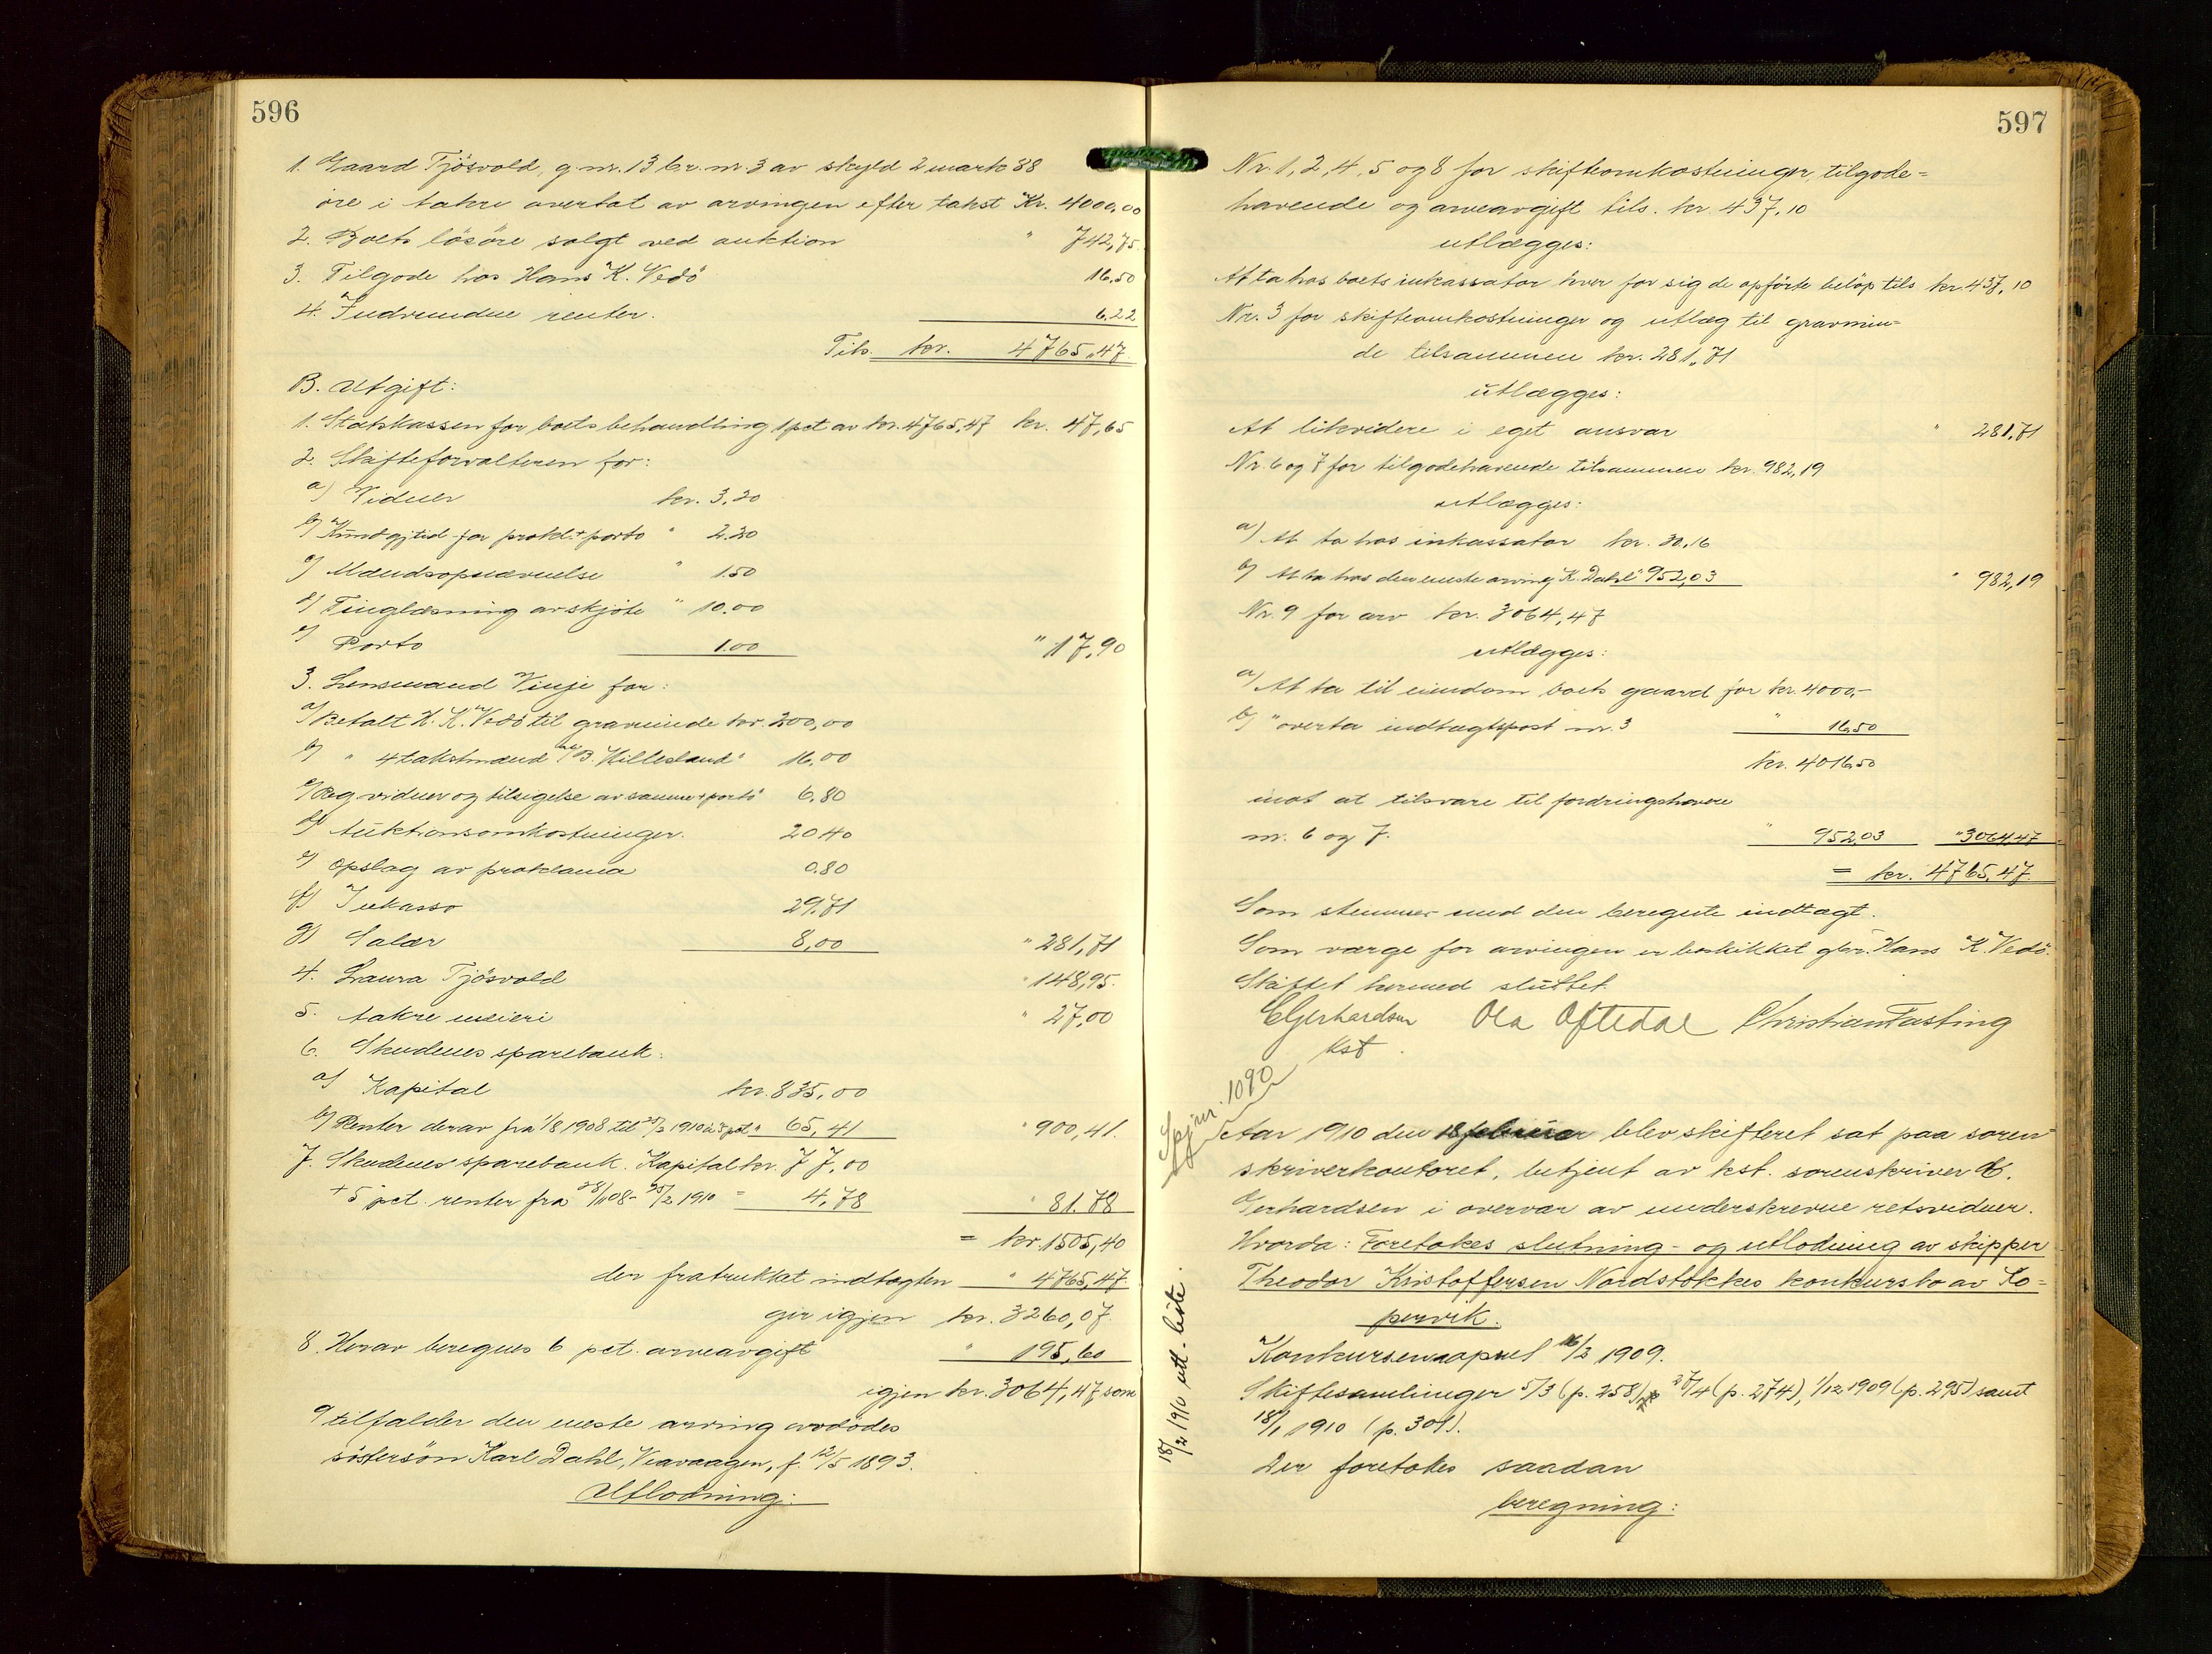 596
1. Gaard Tjösvold, g.nr. 13 br.nr 3 av skyld 2 mark 38
öre i Aakre overtat av arvingen efter takst Kr. 4000,00
2. Boets lösöre solgt ved auktion " 742,75
3. Tilgode hos Hans K. Vedö 16,50
4. Indvundne renter. 6,22
Tils. kr. 4765,47
B. Utgift:
1. Statskassen for boets behandling 1 pct av kr. 4765,47 kr. 47,65
2. Skifteforvalteren for:
a) Vidner kr. 3,20
b) Kundgjtid. for prokl. + porto " 2.20
c) Mændsopnævnelse " 1.50
d) Tinglæsning av skjöte " 10.00
e) Porto 1.00 " 17,90
3. Lensmand Vinje for:
a) Betalt H. K. Vedö til gravminde kr. 200,00
b) " 4 takstmænd B. Hillesland " 16.00
c) Reg. vidner og tilsigelse av samme + porto 6.80
d) Auktionsomkostninger. 20.40
e) Opslag av proklama 0.80
f) Inkasso 29.71
g) Salær 8,00 " 281,71
4. Laura Tjösvold " 148,95.
5. Aakre meieri " 27,00
6. Skudenes sparebank:
a) Kapital kr. 835,00
b) Renter derav fra 1/8 1908 til 25/2 1910 à 5 pct. " 65,41 " 900,41.
7. Skudenes sparebank. Kapital kr. 77,00
+ 5 pct. renter fra 28/11 08 - 25/2 1910 = 4,78 " 81.78
= kr. 1505,40
der fratrukket indtægten " 4765,47.
gir igjen kr. 3260,07.
8. Herav beregnes 6 pct. arveavgift " 195,60
igjen kr. 3064,47 som
9 tilfalder den eneste arving avdödes
söstersön Karl Dahl, Veavaagen, f. 12/5 1893.
Utlodning:
597
Nr. 1, 2, 4, 5 og 8 for skifteomkostninger, tilgode=
havende og arveavgift tils. kr. 437,10
utlægges:
At ta hos boets inkassator hver for sig de opförte belöp tils kr. 437,10
Nr. 3 for skifteomkostninger og utlæg til gravmin=
de tilsammen kr. 281,71
utlægges:
At likvidere i eget ansvar " 281,71
Nr. 6 og 7 for tilgodehavende tilsammen kr. 982,19
utlægges:
a) At ta hos inkassator kr. 30,16
b) At ta hos den eneste arving K. Dahl " 952,03 " 982,19
Nr. 9 for arv kr. 3064,47
utlægges:
a) At ta til eiendom boets gaard for kr. 4000,-
b) " overta indtægtspost nr. 3 " 16,50
kr. 4016,50
imot at tilsvare til fordringshavere
nr. 6 og 7. " 952,03 " 3064,47
= kr. 4765,47.
Som stemmer med den beregnte indtægt.
Som værge for arvingen er beskikket gbr. Hans K. Vedö.
Skiftet hermed sluttet
E Gerhardsen Ola Oftedal Christian Fasting
kst.
Spjnr. 1090
Aar 1910 den 18 februar blev skifteret sat paa soren-
skriverkontoret, betjent av kst. sorenskriver E.
Gerhardsen i overvær av underskrevne retsvidner.
Hvorda: Foretokes slutning- og utlodning av skipper
Theodor Kristoffersen Nordstokkes konkursbo av Ko=
pervik.
Konkursen aapnet 16/2 1909.
Skiftesamlinger 5/3 (p. 258), 27/4 (p. 274), 1/12 1909 (p. 295) samt
18/1 1910 (p. 301).
Der foretokes saadan
beregning:
18/2 1910 utl. liste.